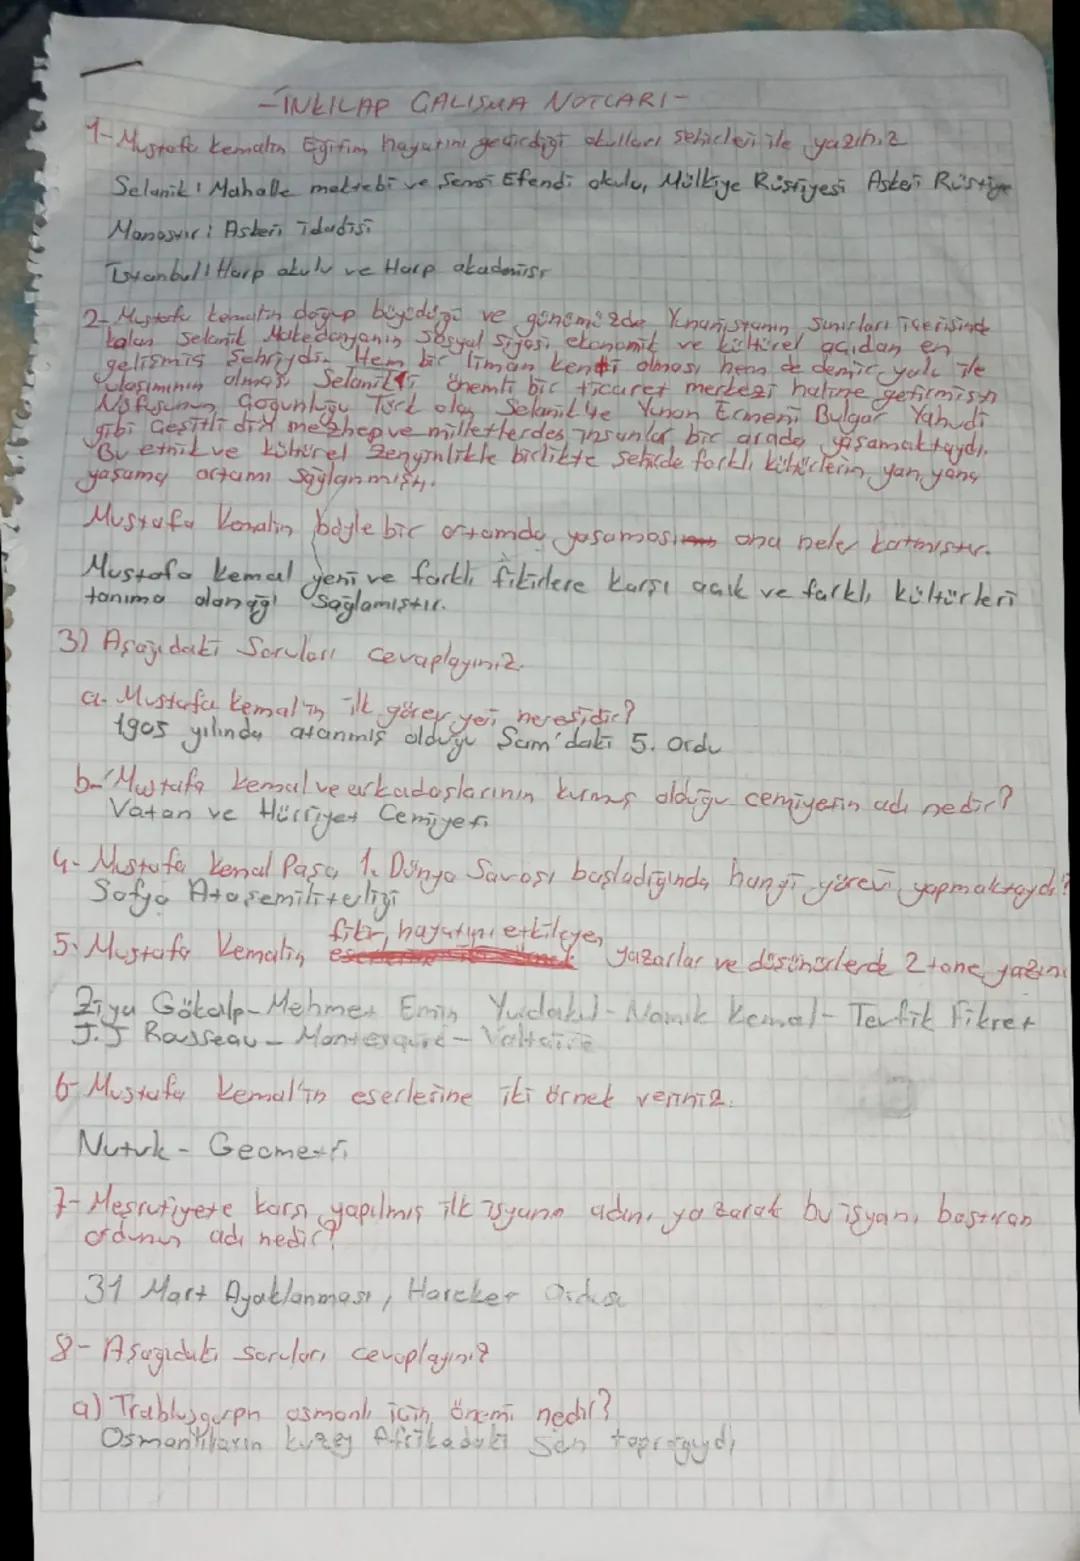 -İNKILAP ÇALIŞMA NOTLARI-
1- Mustafa Kemalin Eğitim hayatını geçirdiği okulları şehirleri ile yazınız
Selanik: Mahalle mektebi ve Şemsi Efendi okulu, Mülkiye Rüştiyesi Askeri Rüştiye
Manastır: Askeri İdadisi
İstanbul: Harp okulu ve Harp akademisi
2- Mustafa Kemalin doğup büyüdüğü ve günümüzde Yunanistanın sınırları içerisinde
kalan Selanik Makedonyanın Sosyal siyasi ekonomik ve kültürel açıdan en
gelişmiş şehriydi. Hem bir liman kenti olması hem de demir yolu ile
ulaşımının olması Selanik'i önemli bir ticaret merkezi haline getirmişti
Nüfusunun Çoğunluğu Türk olan Selanik'te Yunan Ermeni Bulgar Yahudi
gibi Çeşitli din mezhep ve milletlerdes insanlar bir arada yaşamaktaydı.
Bu etnik ve kültürel zenginlikle birlikte şehirde farklı kültürlerin yan yana
yaşama ortamı sağlanmıştı.
Mustafa Kemalin böyle bir ortamda yaşaması ona neler katmıştır.
Mustafa Kemal yeni ve farklı fikirlere karşı açık ve farklı kültürleri
tanıma olanağı sağlamıştır.
3) Aşağıdaki Soruları cevaplayınız.
a- Mustafa Kemal'in ilk görev yeri neresidir?
1905 yılında atanmış olduğu Şam'daki 5. Ordu
b- Mustafa Kemal ve arkadaşlarının kurmuş olduğu cemiyetin adı nedir?
Vatan ve Hürriyet Cemiyeti
4- Mustafa Kemal Paşa 1. Dünya Savaşı başladığında hangi görevi yapmaktaydı?
Sofya Ataşemiliterliği
5- Mustafa Kemalin fikir, hayatını etkileyen yazarlar ve düşünürlerde 2 tane yazını
Ziya Gökalp- Mehmet Emin Yurdakul- Namık Kemal- Tevfik Fikret
J.J Rousseau - Montesquie - Voltaire
6- Mustafa Kemal'in eserlerine iki örnek veriniz.
Nutuk - Geometri
7- Meşrutiyete karşı yapılmış ilk isyanın adını yazarak bu isyanı bastıran
ordunun adı nedir?
31 Mart Ayaklanması, Hareket Ordusu
8- Aşağıdaki soruları cevaplayınız
a) Trablusgarpın osmanlı için önemi nedir?
Osmanlıların kuzey Afrikadaki son toprağıydı